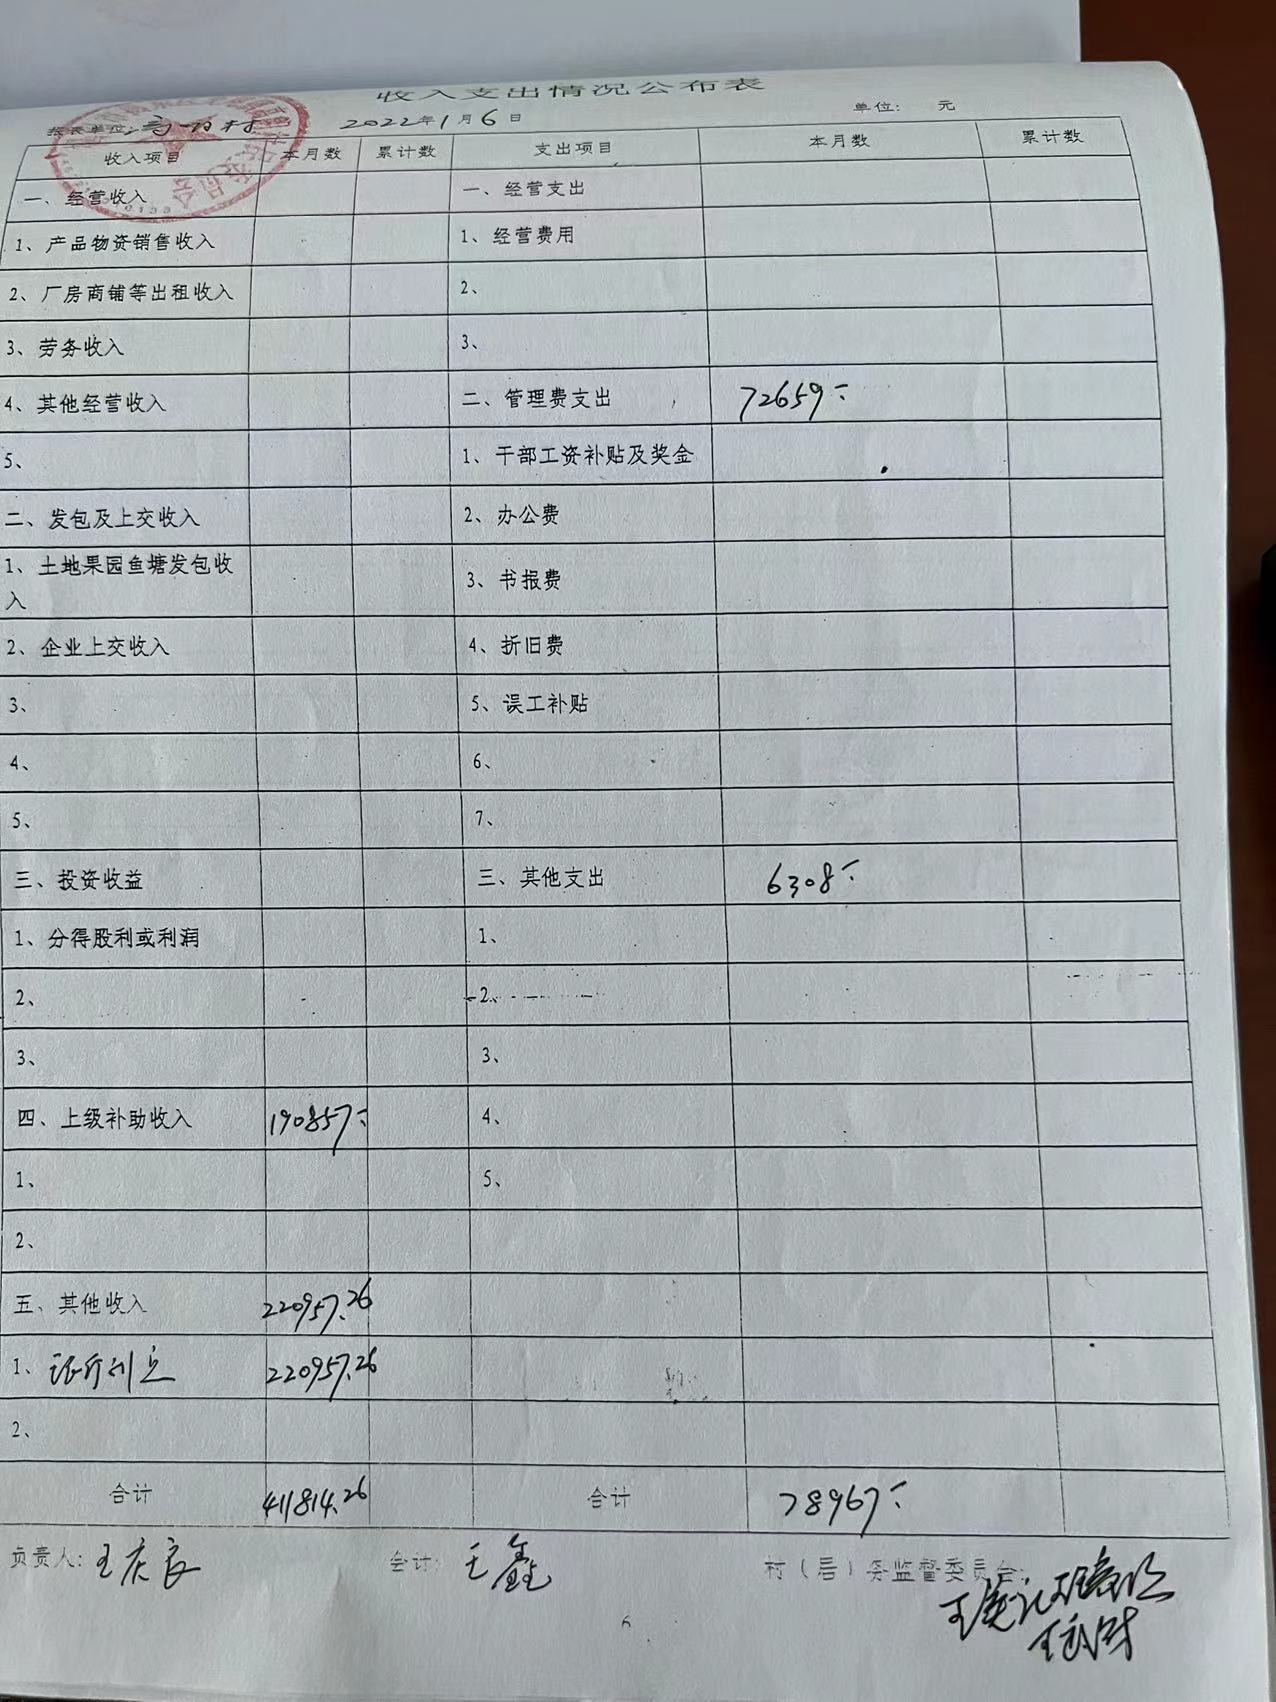 收入支出情况公布表
报表单位: 村 2022年1月6日 单位: 元
收入项目 本月数 累计数 支出项目 本月数 累计数
一、经营收入 一、经营支出
1、产品物资销售收入 1、经营费用
2、厂房商铺等出租收入 2、
3、劳务收入 3、
4、其他经营收入 二、管理费支出 72659
5、 1、干部工资补贴及奖金
二、发包及上交收入 2、办公费
1、土地果园鱼塘发包收
入 3、书报费
2、企业上交收入 4、折旧费
3、 5、误工补贴
4、 6、
5、 7、
三、投资收益 三、其他支出 6308
1、分得股利或利润 1、
2、 2、
3、 3、
四、上级补助收入 190857 4、
1、 5、
2、
五、其他收入 220957.26
1、 220957.26
2、
合计 411814.26 合计 78967
负责人: 王庆良 会计: 王鑫 村(居)务监督委员会: